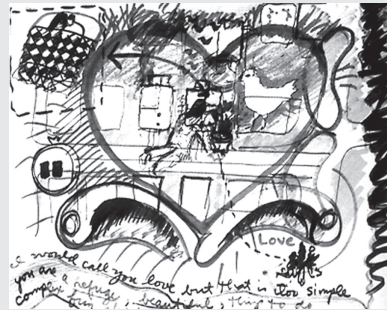 Love
I would call you love but that is too simple
you are a refuge, beautiful, thing to do
complex